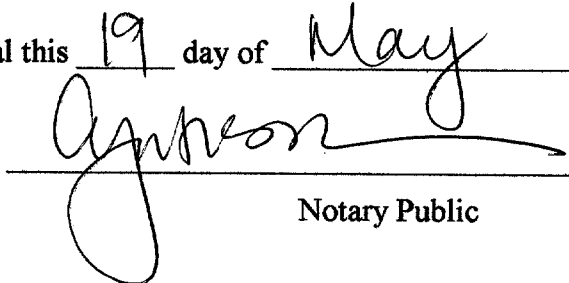 al this 19 day of May
Notary Public